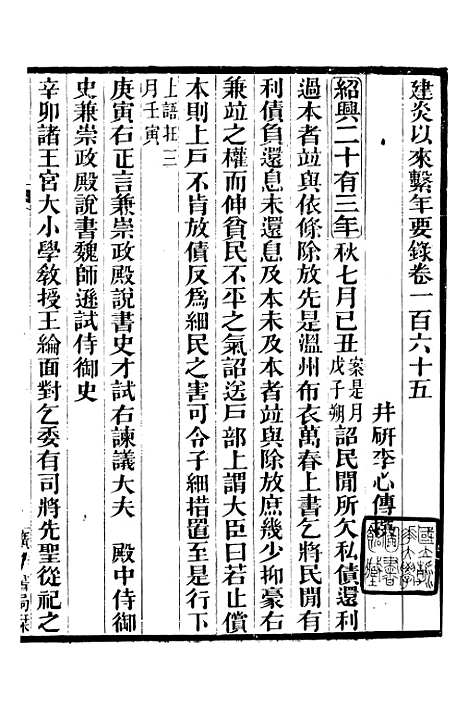 建炎以來繫年要錄卷一百六十五
井研李心傳撰
紹興二十有三年秋七月己丑案是月戊子朔詔民閒所欠私債還利
過本者竝與依條除放先是溫州布衣萬春上書乞將民閒有
利債負還息未還息及本未及本者竝與除放庶幾少抑豪右
兼竝之權而伸貧民不平之氣詔送戸部上謂大臣曰若止償
本則上戸不肯放債反爲細民之害可令子細措置至是行下
上語在三月壬寅
庚寅右正言兼崇政殿說書史才試右諫議大夫　殿中侍御
史兼崇政殿說書魏師遜試侍御史
辛卯諸王宮大小學敎授王綸面對乞委有司將先聖從祀之